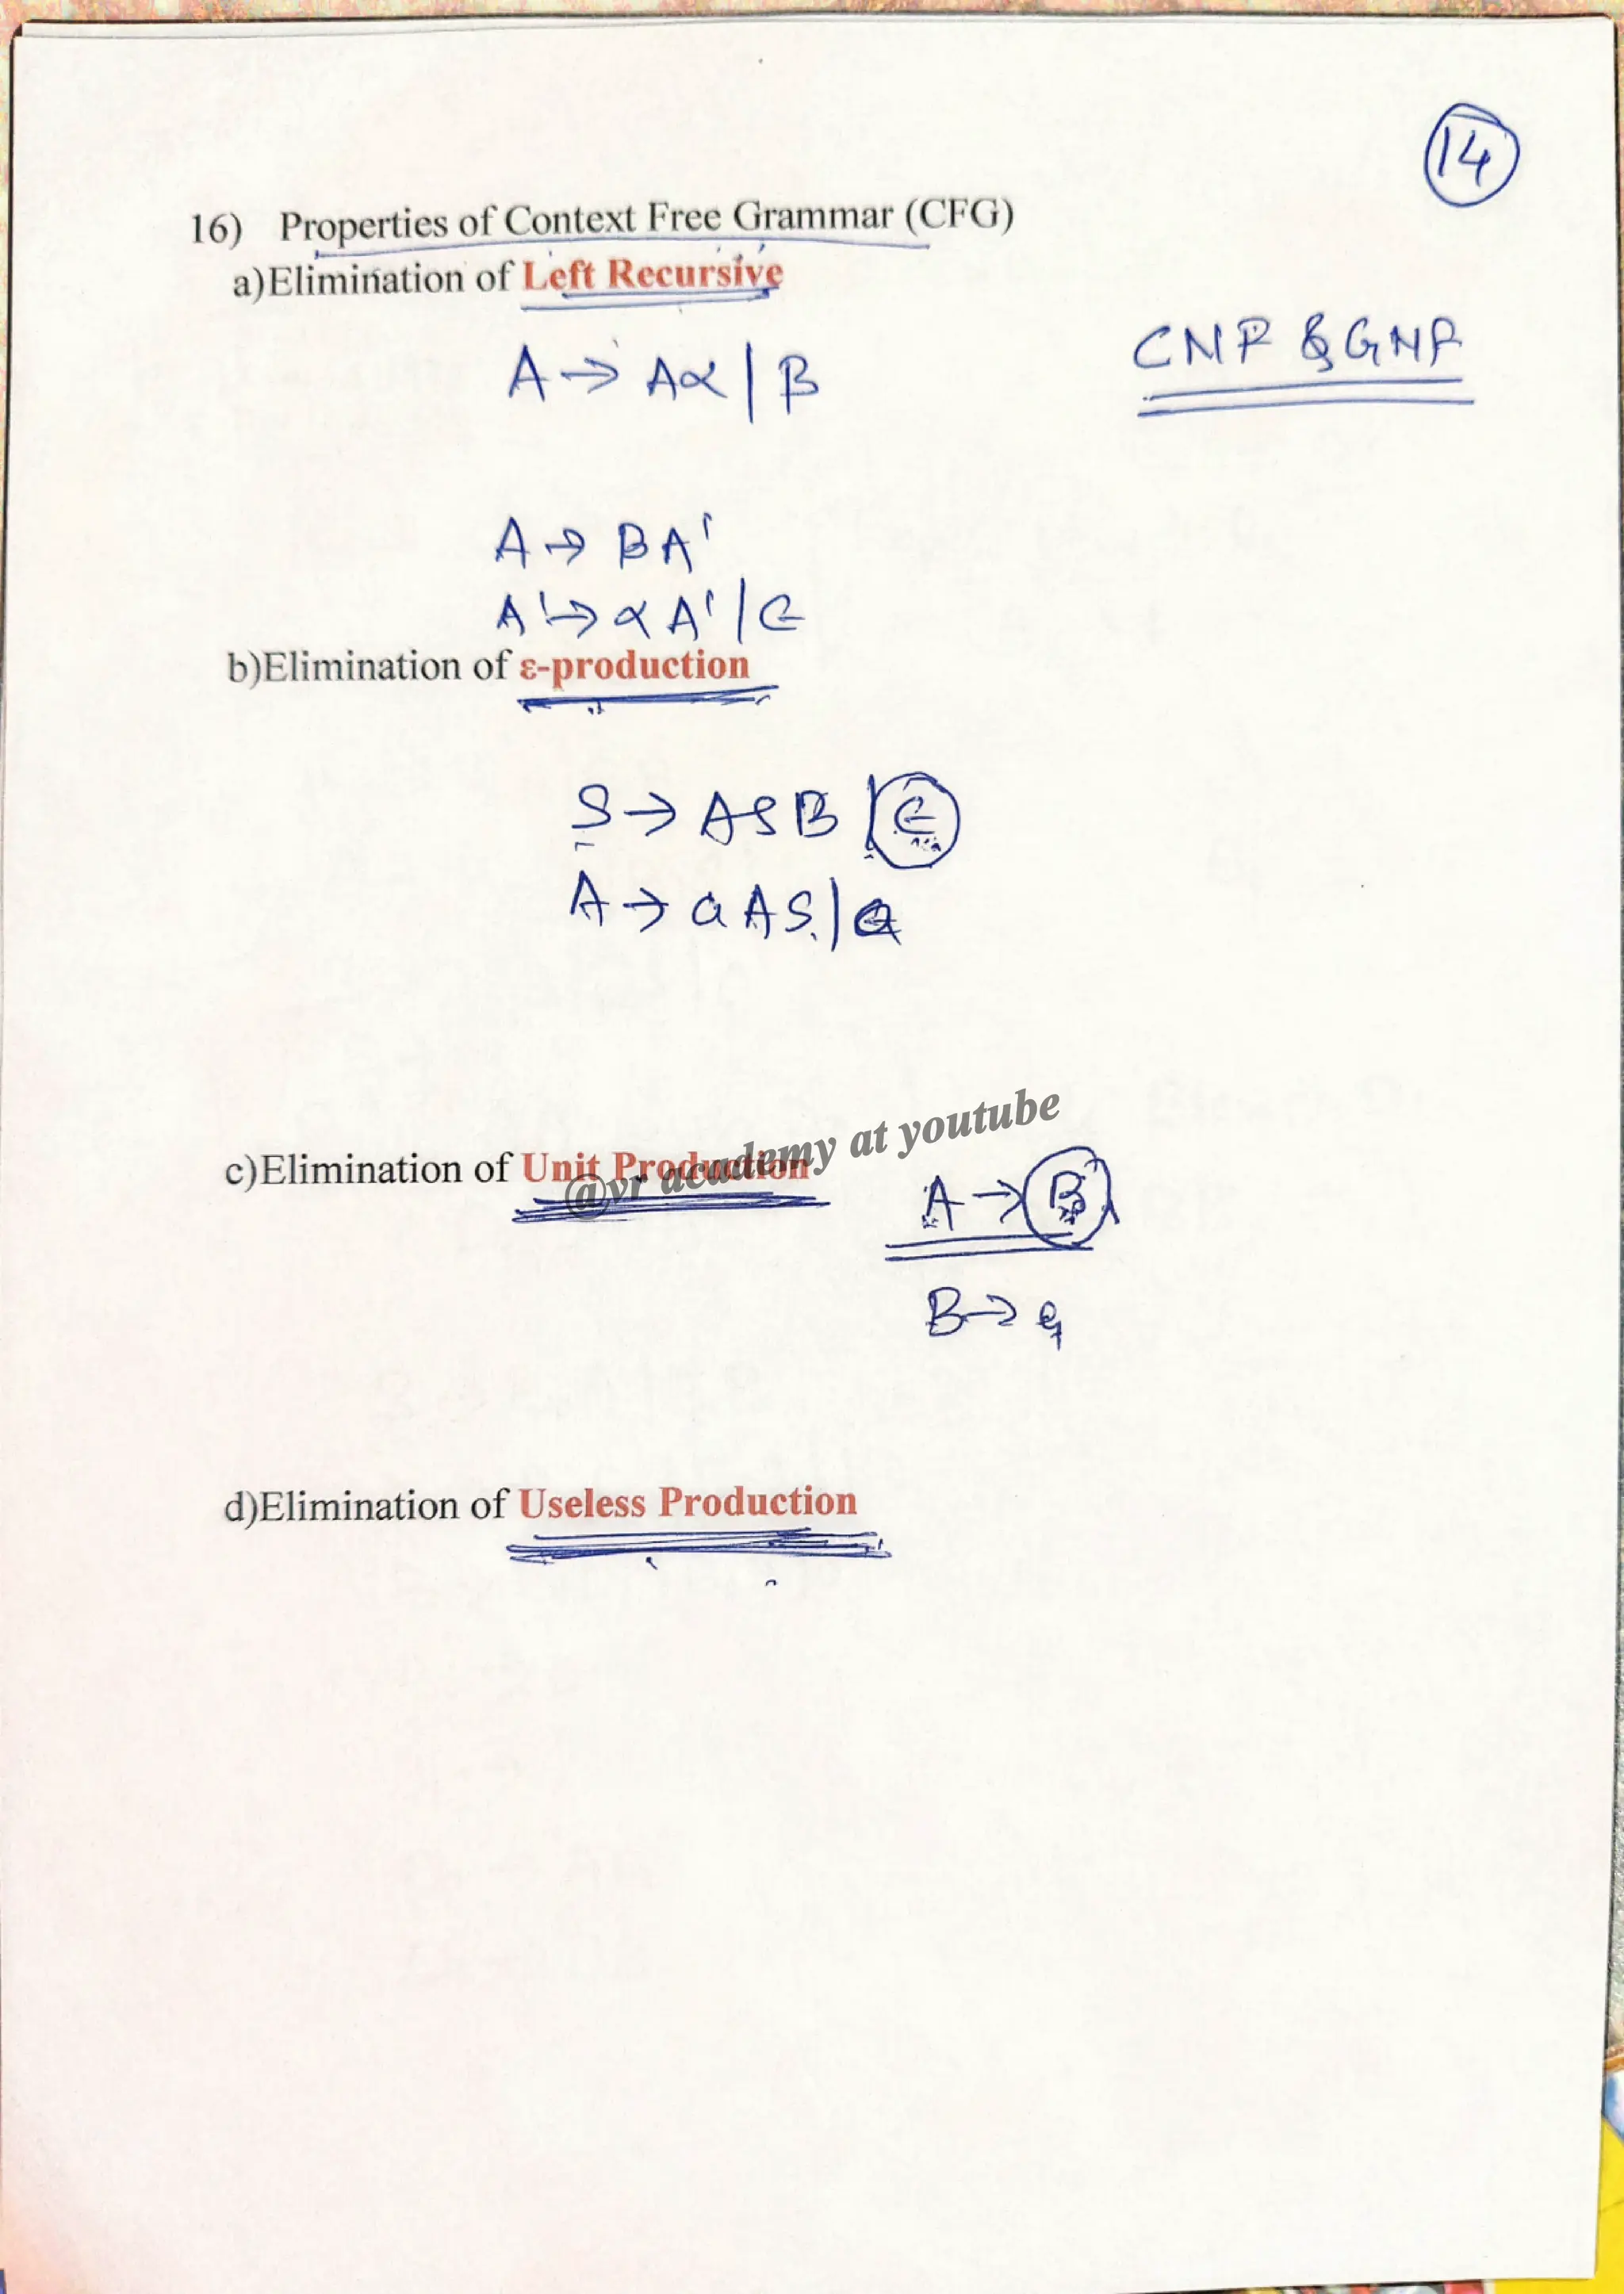 14
16) Properties of Context Free Grammar (CFG)
a)Elimination of Left Recursive
CNF & GNF
A → Aα | β
A → βA'
A' → αA' | ε
b)Elimination of ε-production
S → ASB | ε
A → aAS | a
@vr academy at youtube
c)Elimination of Unit Production
A → B
B → a
d)Elimination of Useless Production